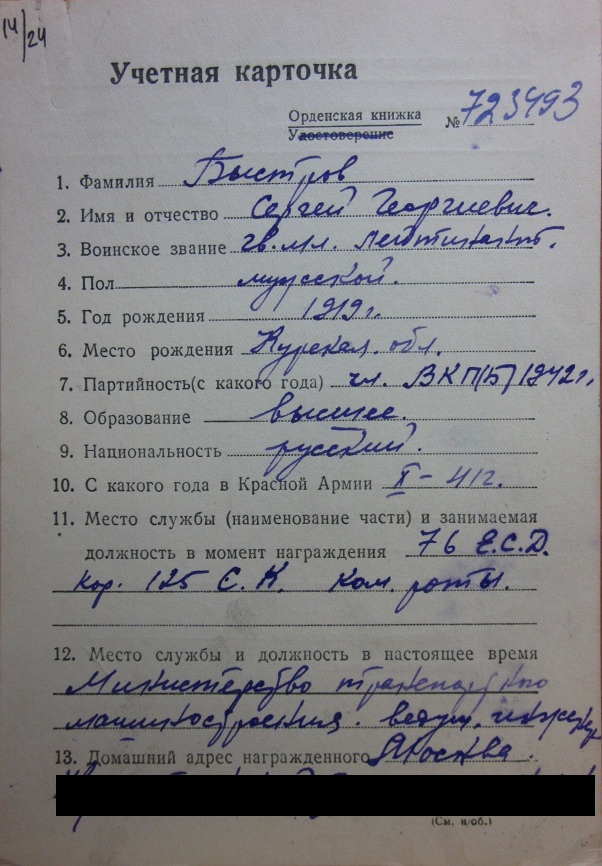 14/24
Учетная карточка
Орденская книжка
Удостоверение
№ 723493
1. Фамилия Быстров
2. Имя и отчество Сергей Георгиевич.
3. Воинское звание гв. мл. лейтинант.
4. Пол мужской.
5. Год рождения 1919 г.
6. Место рождения Курская обл.
7. Партийность(с какого года) чл. ВКП(б) 1942 г.
8. Образование высшее.
9. Национальность русский.
10. С какого года в Красной Армии X - 41 г.
11. Место службы (наименование части) и занимаемая
должность в момент награждения 76 Е.С.Д.
кор. 125 С.К. ком. роты.
12. Место службы и должность в настоящее время
Министерство транспортного
машиностроения. ведущ. инженер
13. Домашний адрес награжденного Москва.
(См. н/об.)